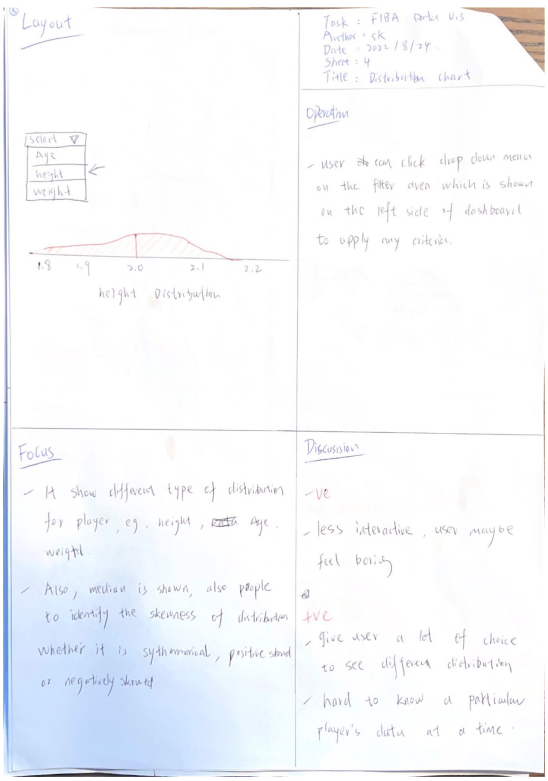 Layout
Task : FIBA Data Vis
Author : SK
Date : 2022/8/24
Sheet : 4
Title : Distribution chart
Select
Age
height
weight
1.8 1.9 2.0 2.1 2.2
height Distribution
Operation
- user can click drop down menu
on the filter area which is shown
on the left side of dashboard
to apply any criteria.
Focus
- It show different type of distribution
for player, eg. height, Age.
weight
- Also, median is shown, also people
to identify the skewness of distribution
whether it is sythomorical, positive skewed
or negatively skewed
Discusision
-ve
- less interactive, user maybe
feel boring
+ve
- give user a lot of choice
to see different distribution
- hard to know a particular
player's data at a time.